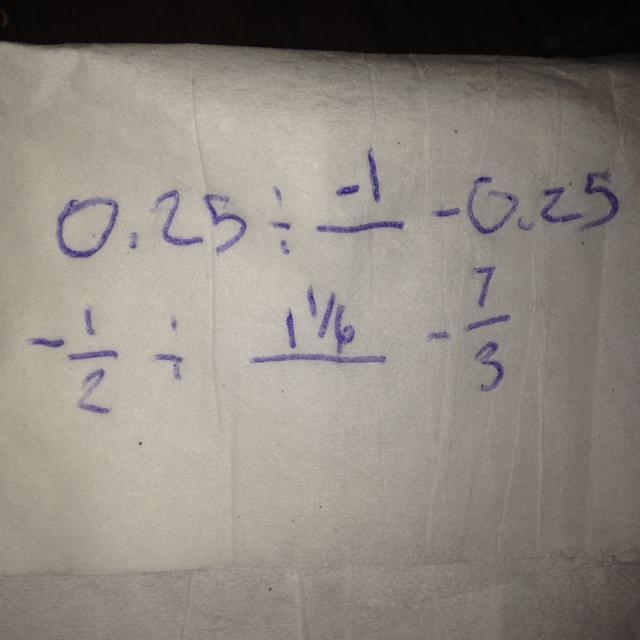 0.25 ÷ -1 -0.25
-1/2 ÷ 1 1/6 -7/3